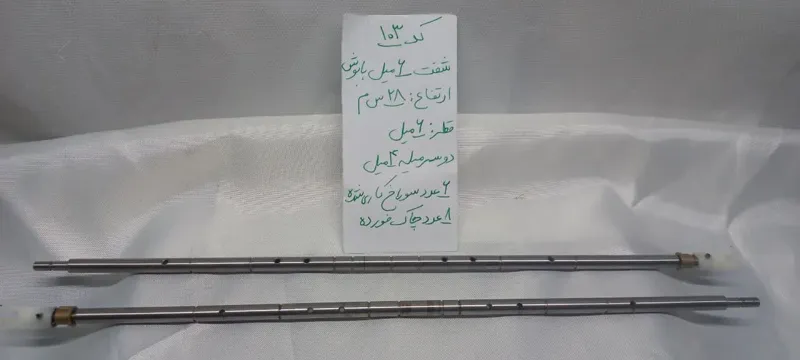 کد ۱۰۳
شفت ۶ میل با بوش
ارتفاع: ۲۸ س م
قطر: ۶ میل
دو سر میله ۴ میل
۶ عدد سوراخ کاری شده
۸ عدد چاک خورده